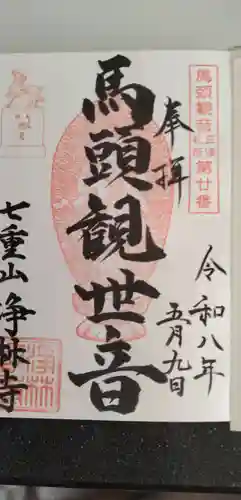 奉拝
馬頭観世音
令和八年
五月九日
七重山浄林寺
馬頭観音
第廿番